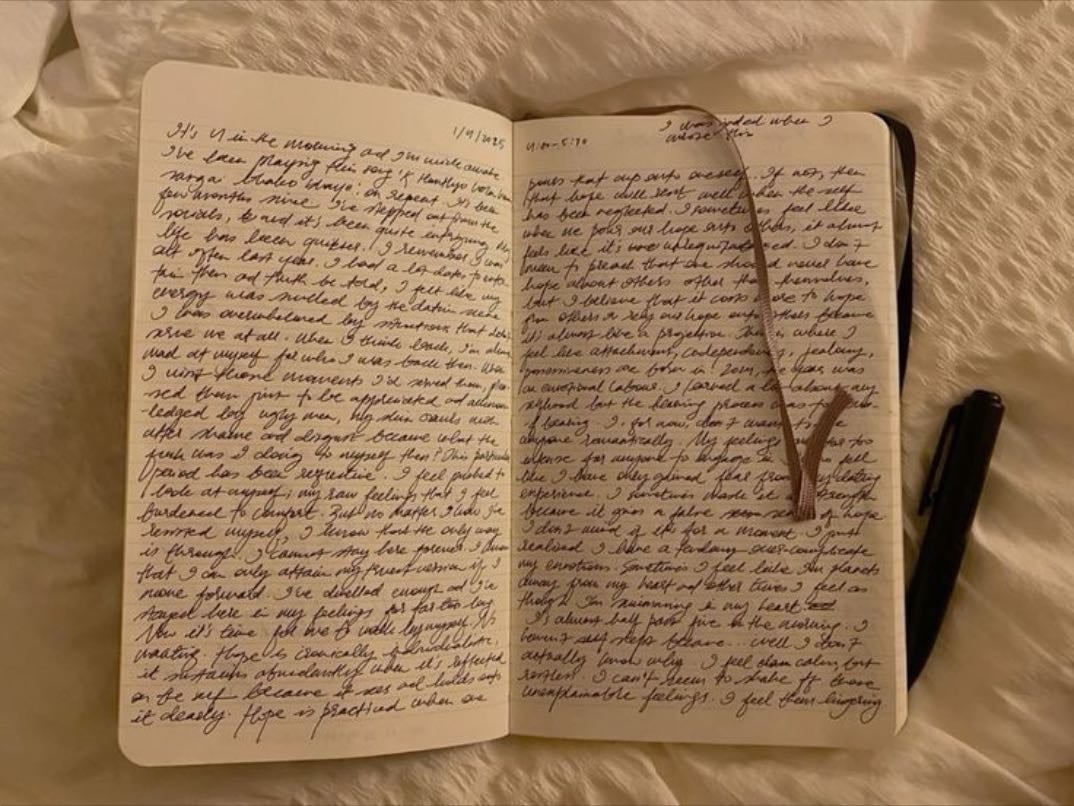 1/9/2025
It's 4 in the morning ad I'm wide awake
I've been playing this song
on repeat. It's been
few months since I've stepped out from the
socials, ad it's been quite
life has been quieter. I remember I was
out often last year. I had a lot dates to
them ad truth be told, I felt like my
energy was by the dating scene
I was overwhelmed by situations that didn't
serve me at all. When I think back, I'm always
mad at myself for who I was back then. When
I visit those moments I'd served them,
them just to be appreciated ad
ledged by ugly men, my skin crawls with
utter shame ad disgust because what the
fuck was I doing to myself then? This particular
period has been regressive. I feel pushed to
look at myself; my raw feelings that I feel
burdened to comfort. But no matter how I've
resisted myself, I know that the only way
is through. I cannot stay here forever. I know
that I can only attain my truest version if I
move forward. I've dwelled enough ad I've
stayed here in my feelings for far too long
Now it's time for me to walk by myself. It's
waiting. Hope is ironically individualistic,
it sustains abundantly when it's reflected
on the self because it sees ad holds onto
it dearly. Hope is practiced when one
I was jaded when I
wrote this
4:00-5:30
pours that cup onto oneself. If not, then
that hope will rent well when the self
has been neglected. I sometimes feel like
when we pour our hope onto others, it almost
feels like it's now
mean to preach that one should never have
hope about others other than themselves,
but I believe that it costs more to hope
for others or rely our hope onto others because
it's almost like a projection. This is where I
feel like attachment, codependency, jealousy,
possessiveness are born in 2024, the year was
an emotional labour. I learned a lot about my
selfhood but the healing process was
of healing. I, for now, don't want to be
anyone romantically. My feelings are far too
intense for anyone to engage in feel
like I have only gained fear from my dating
experience. I sometimes made it a strength
because it gives a false sense of hope
I don't mind if it's for a moment. I just
realised I have a tendency over-complicate
my emotions. Sometimes I feel like I'm planets
away from my heart ad other times I feel as
though I'm swimming in my heart
It's almost half past five in the morning. I
haven't slept because... well I don't
actually know why. I feel damn calm, but
restless. I can't seem to shake off these
unexplainable feelings. I feel them lingering